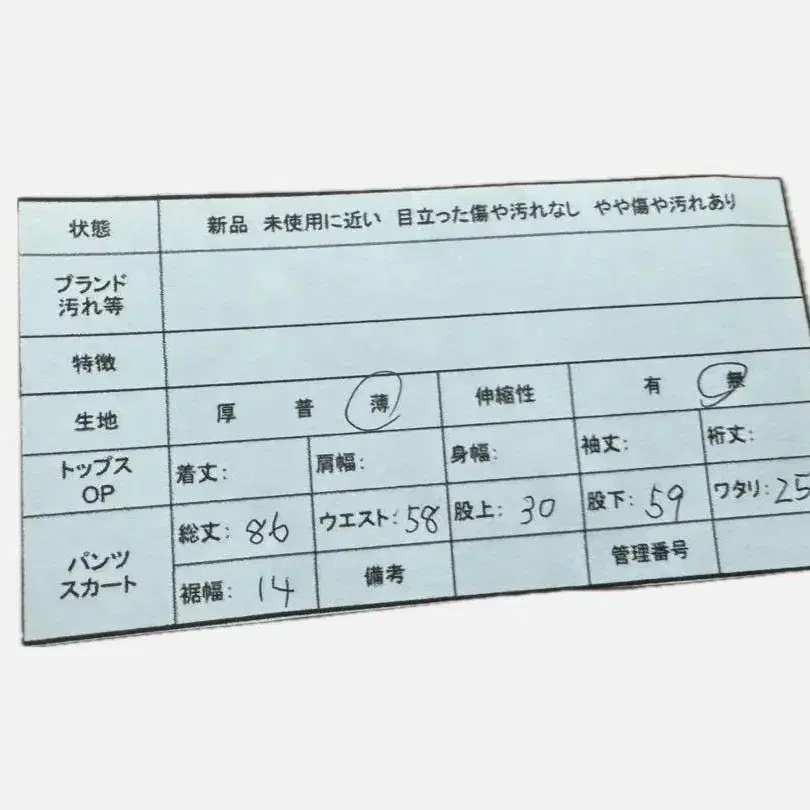 状態 新品 未使用に近い 目立った傷や汚れなし やや傷や汚れあり
ブランド
汚れ等
特徴
生地 厚 普 薄 伸縮性 有 無
トップス
OP
着丈: 肩幅: 身幅: 袖丈: 裄丈:
パンツ
スカート
総丈: 86 ウエスト: 58 股上: 30 股下: 59 ワタリ: 25
裾幅: 14 備考 管理番号